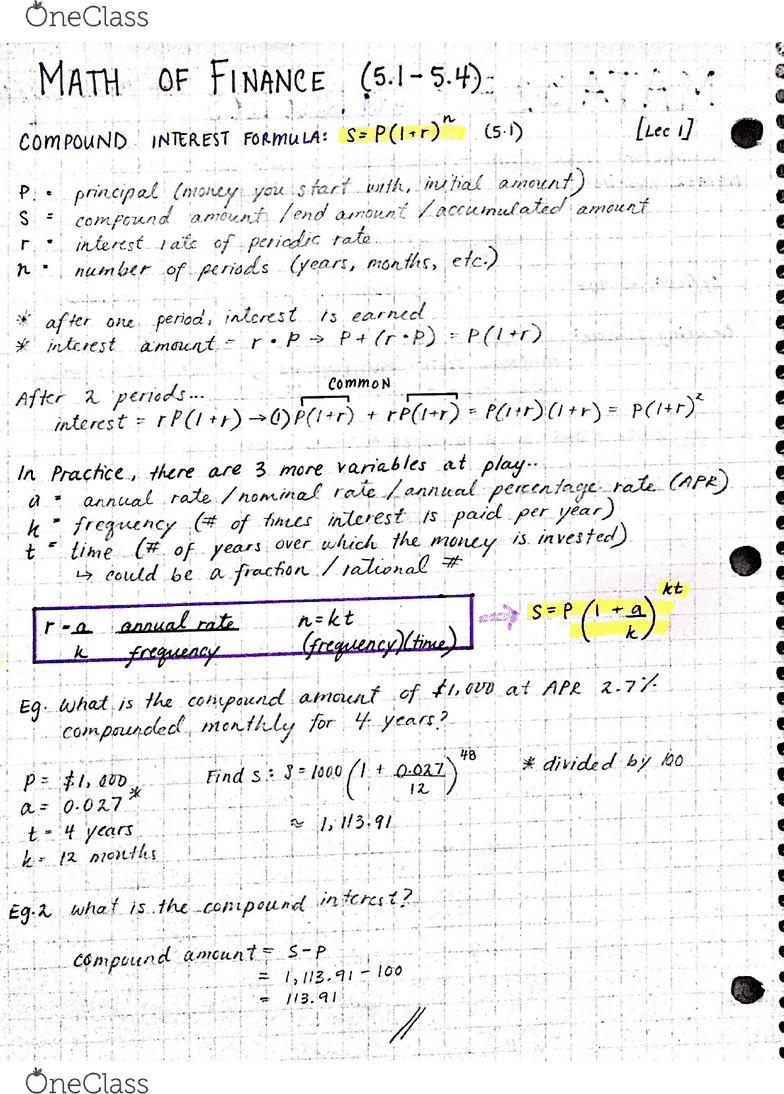 OneClass
MATH OF FINANCE (5.1-5.4)
COMPOUND INTEREST FORMULA: S=P(1+r)^n (5.1) [Lec 1]
P = principal (money you start with, initial amount)
S = compound amount /end amount /accumulated amount
r = interest rate of periodic rate
n = number of periods (years, months, etc.)
* after one period, interest is earned
* interest amount = r • P → P + (r • P) = P(1+r)
COMMON
After 2 periods...
interest = rP(1+r) → (1)P(1+r) + rP(1+r) = P(1+r)(1+r) = P(1+r)²
In Practice, there are 3 more variables at play..
a = annual rate /nominal rate /annual percentage rate (APR)
k = frequency (# of times interest is paid per year)
t = time (# of years over which the money is invested)
↳ could be a fraction / rational #
r = a/k annual rate/frequency n=kt (frequency)(time) → S=P(1+a/k)^kt
Eg. What is the compound amount of $1,000 at APR 2.7%
compounded monthly for 4 years?
P = $1,000
a = 0.027*
t = 4 years
k = 12 months
Find S: S = 1000(1 + 0.027/12)^48 * divided by 100
≈ 1,113.91
Eg.2 what is the compound interest?
compound amount = S-P
= 1,113.91 - 100
= 113.91
OneClass